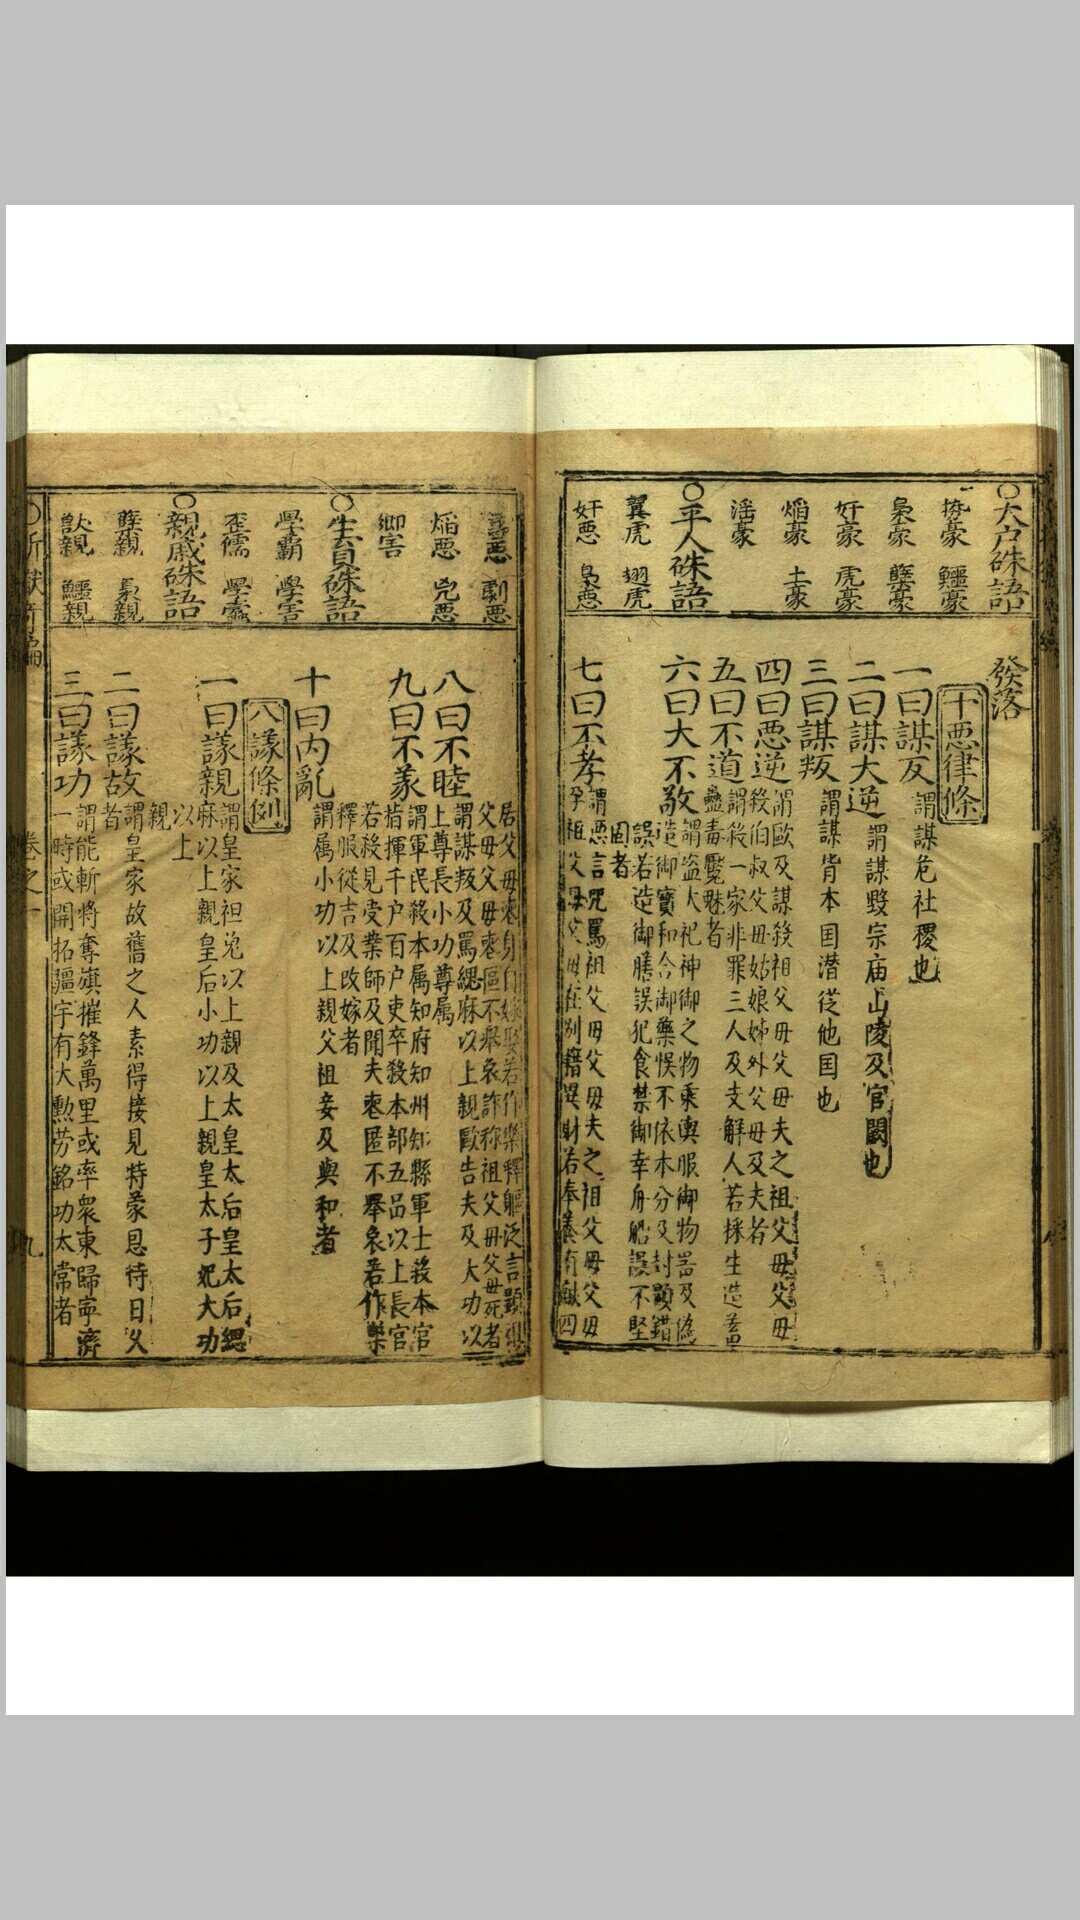 ○大戶硃語
㧓豪 鱷豪
梟豪 孽豪
奸豪 虎豪
熖豪 土豪
滛豪
○平人硃語
翼虎 翅虎
奸惡 梟惡
發落
十惡律條
一曰謀反 謂謀危社稷也
二曰謀大逆 謂謀毀宗庙山陵及官闕也
三曰謀叛 謂謀背本国潜從他国也
四曰惡逆 謂毆及謀殺祖父母父母夫之祖父母父母
殺伯叔父母姑娘姊外公母及夫者
五曰不道 謂殺一家非罪三人及支解人若採生造畜
蠱毒魘魅者
六曰大不敬 謂盗大祀神御之物乘輿服御物盗及偽
造御寶和合御藥悞不依本分及封題錯
誤若造御膳誤犯食禁御幸舟船誤不堅
固者
七曰不孝 謂惡言咒罵祖父母父母夫之祖父母父母
祖父母父母在別籍異財若奉養有缺四
劇惡
熖惡 兇惡
鄉害
○生員硃語
學霸 學害
歪儒 學蠹
○親戚硃語
孽親 梟親
獸親 鱷親
居父母喪身自嫁娶若作樂釋軀泛言
父母父母喪匿不舉哀詐称祖父母父母死者
八曰不睦 謂謀叛及罵緦麻以上親毆告夫及大功以
上尊長小功尊属
九曰不義 謂軍民殺本属知府知州知縣軍士殺本官
指揮千户百户吏卒殺本部五品以上長官
若殺見受業師及聞夫喪匿不舉哀若作樂
釋服從吉及改嫁者
十曰內亂 謂属小功以上親父祖妾及與和者
八議條例
一曰議親 謂皇家袒免以上親及太皇太后皇太后緦
麻以上親皇后小功以上親皇太子妃大功
以上
親
二曰議故 謂皇家故舊之人素得接見特蒙恩待日久
者
三曰議功 謂能斬將奪旗摧鋒萬里或率衆東歸寧濟
一時或開拓疆宇有大勲劳銘功太常者
卷之一
九